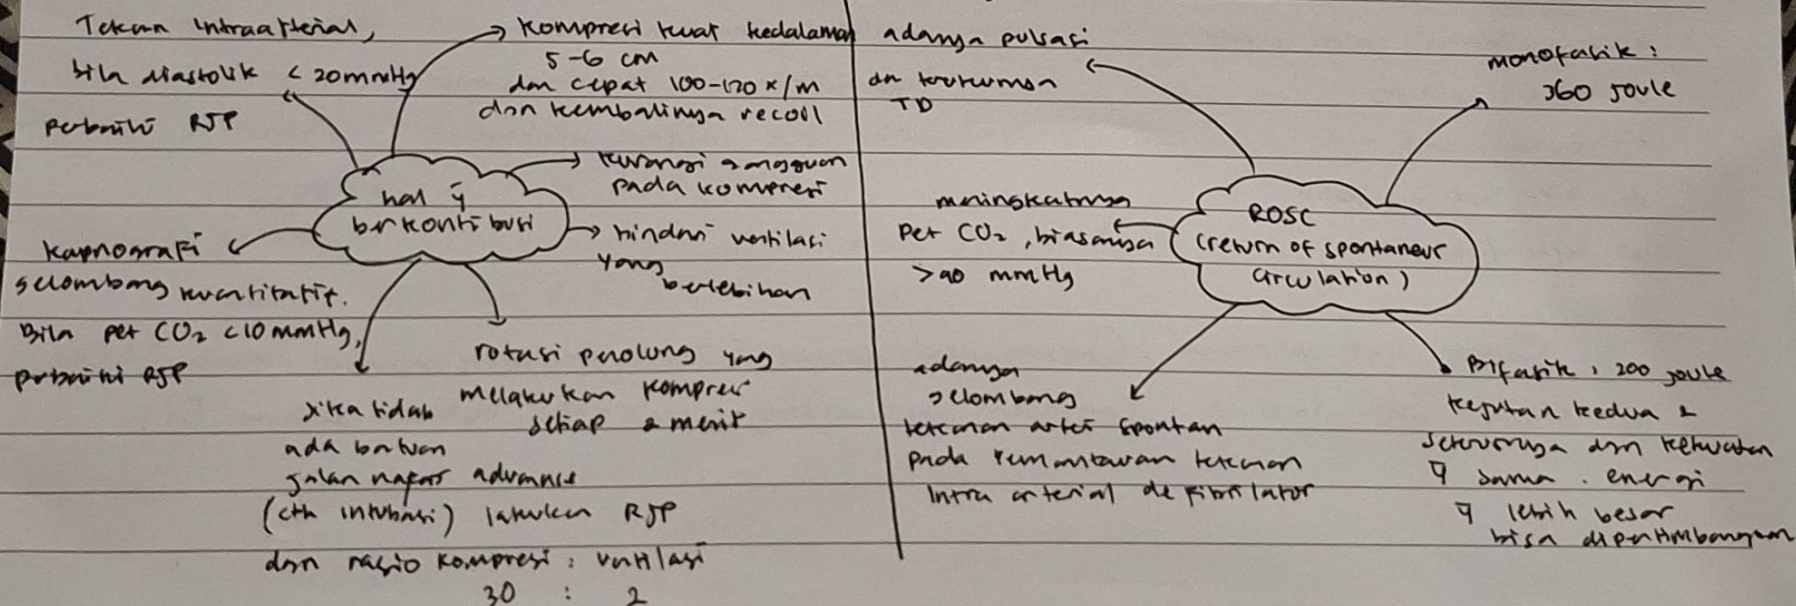 Tekan intraarterial,
bila diastolik < 20 mmHg
perbaiki RJP
Kompresi kuat kedalaman
5-6 cm
dan cepat 100-120 x/m
dan kembalinya recoil
kurangi gangguan
pada kompresi
hindari ventilasi
yang
berlebihan
hal ỹ
berkontribusi
kapnografi
gelombang kuantitatif.
Bila pet CO₂ < 10 mmHg,
perbaiki RJP
rotasi penolong yang
melakukan kompresi
setiap 2 menit
jika tidak
ada batuan
jalan nafas advance
(cth intubasi) lakukan RJP
dan rasio kompresi : ventilasi
30 : 2
adanya pulsasi
dn
TD
monofasik :
360 joule
meningkatnya
pet CO₂, biasanya
>40 mmHg
ROSC
(return of spontaneur
circulation)
adanya
gelombang
tekanan arteri spontan
pada pemantauan tekanan
intra arterial defibrilator
Bifasik : 200 joule
kejutan kedua &
seterusnya dan kekuatan
ỹ sama . energi
ỹ lebih besar
bisa dipertimbangkan